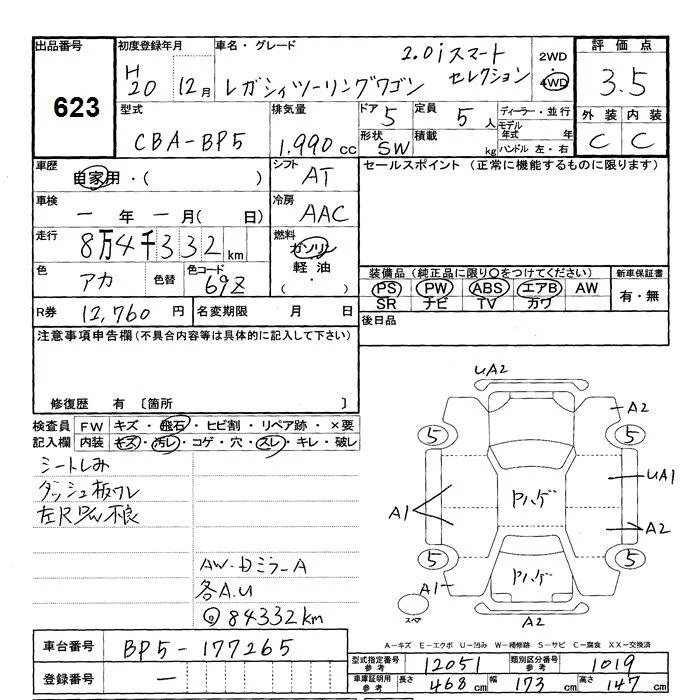 出品番号 初度登録年月 車名・グレード 評価点
623
H20 12月 レガシィツーリングワゴン 2.0i スマートセレクション 2WD 4WD 3.5
型式 排気量 ドア 定員 ディーラー・並行 外装 内装
CBA-BP5 1,990 cc 5 5人 モデル年式 年 C C
形状 SW 積載 kg ハンドル 左・右
車歴 自家用・( ) シフト AT セールスポイント (正常に機能するものに限ります)
車検 一年一月( 日) 冷房 AAC
走行 8万4千332km 燃料 ガソリン 軽油 ( ・ )
色 アカ 色替 色コード 69Z
装備品(純正品に限り○をつけてください) 新車保証書
PS PW ABS エアB AW 有・無
SR ナビ TV カワ
R券 12,760円 名変期限 月 日 後日品
注意事項申告欄(不具合内容等は具体的に記入して下さい)
修復歴 有 〔箇所 〕
検査員 FW キズ・飛石・ヒビ割・リペア跡・×要
記入欄 内装 キズ・汚レ・コゲ・穴・スレ・キレ・破レ
シートしみ
ダッシュ板ワレ
左R P/W不良
AW・Dミラ-A
各A.U
84332km
UA2
A2
5 5
UA1
A1 Pハゲ
A2
5 5
Pハゲ
A1
スペア
A2
A-キズ E-エクボ U-凹み W-補修跡 S-サビ C-腐食 XX-交換済
車台番号 BP5-177265
型式指定番号 参考 12051 類別区分番号 参考 1019
登録番号 一
車庫証明用 参考 長さ 468cm 幅 173cm 高さ 147cm